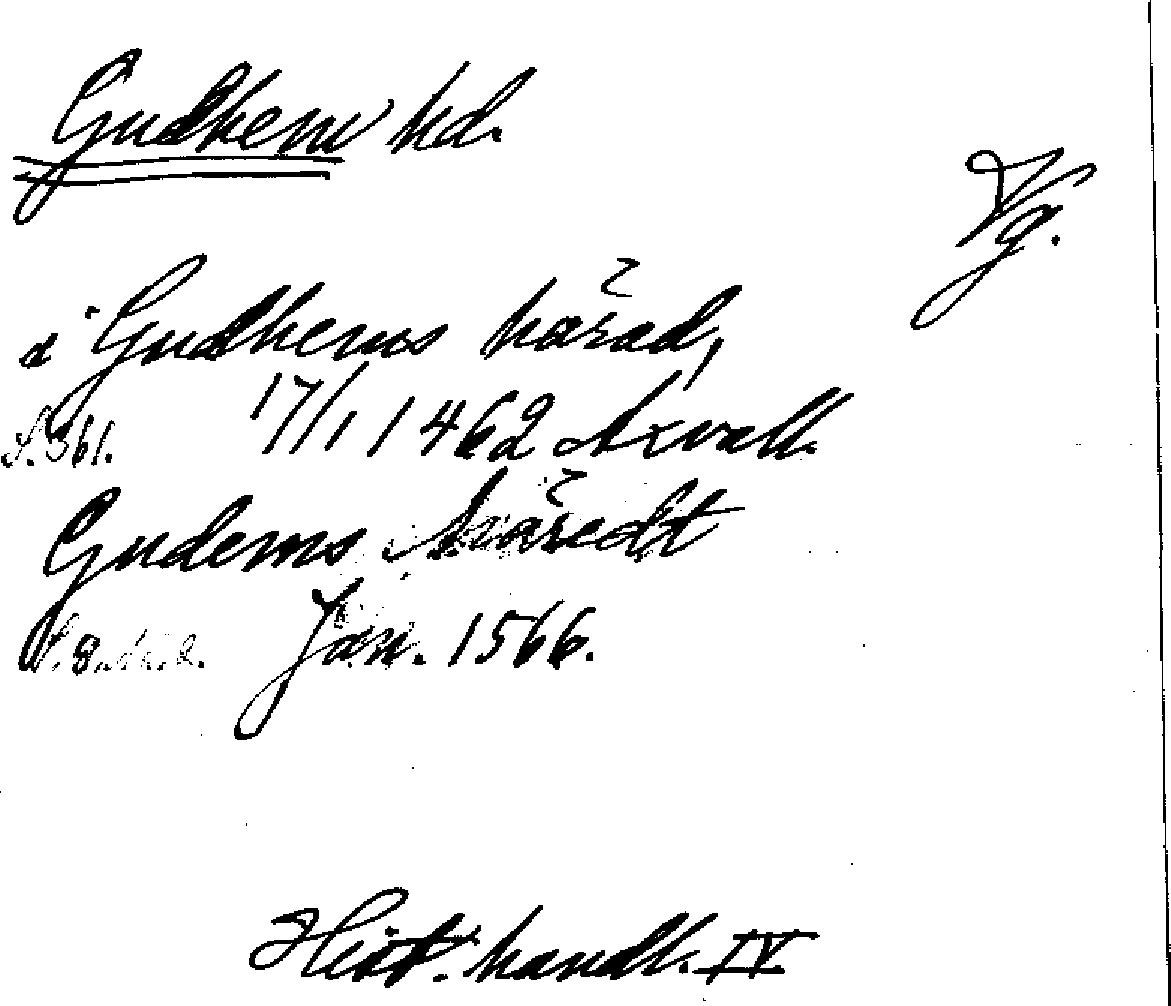 Gudhem hd.
Vg.
i Gudhems härad,
S. 361. 17/1 1462 Axvall.
Gudems häredt
S. 8. Jan. 1566.
Hist. handl. IV